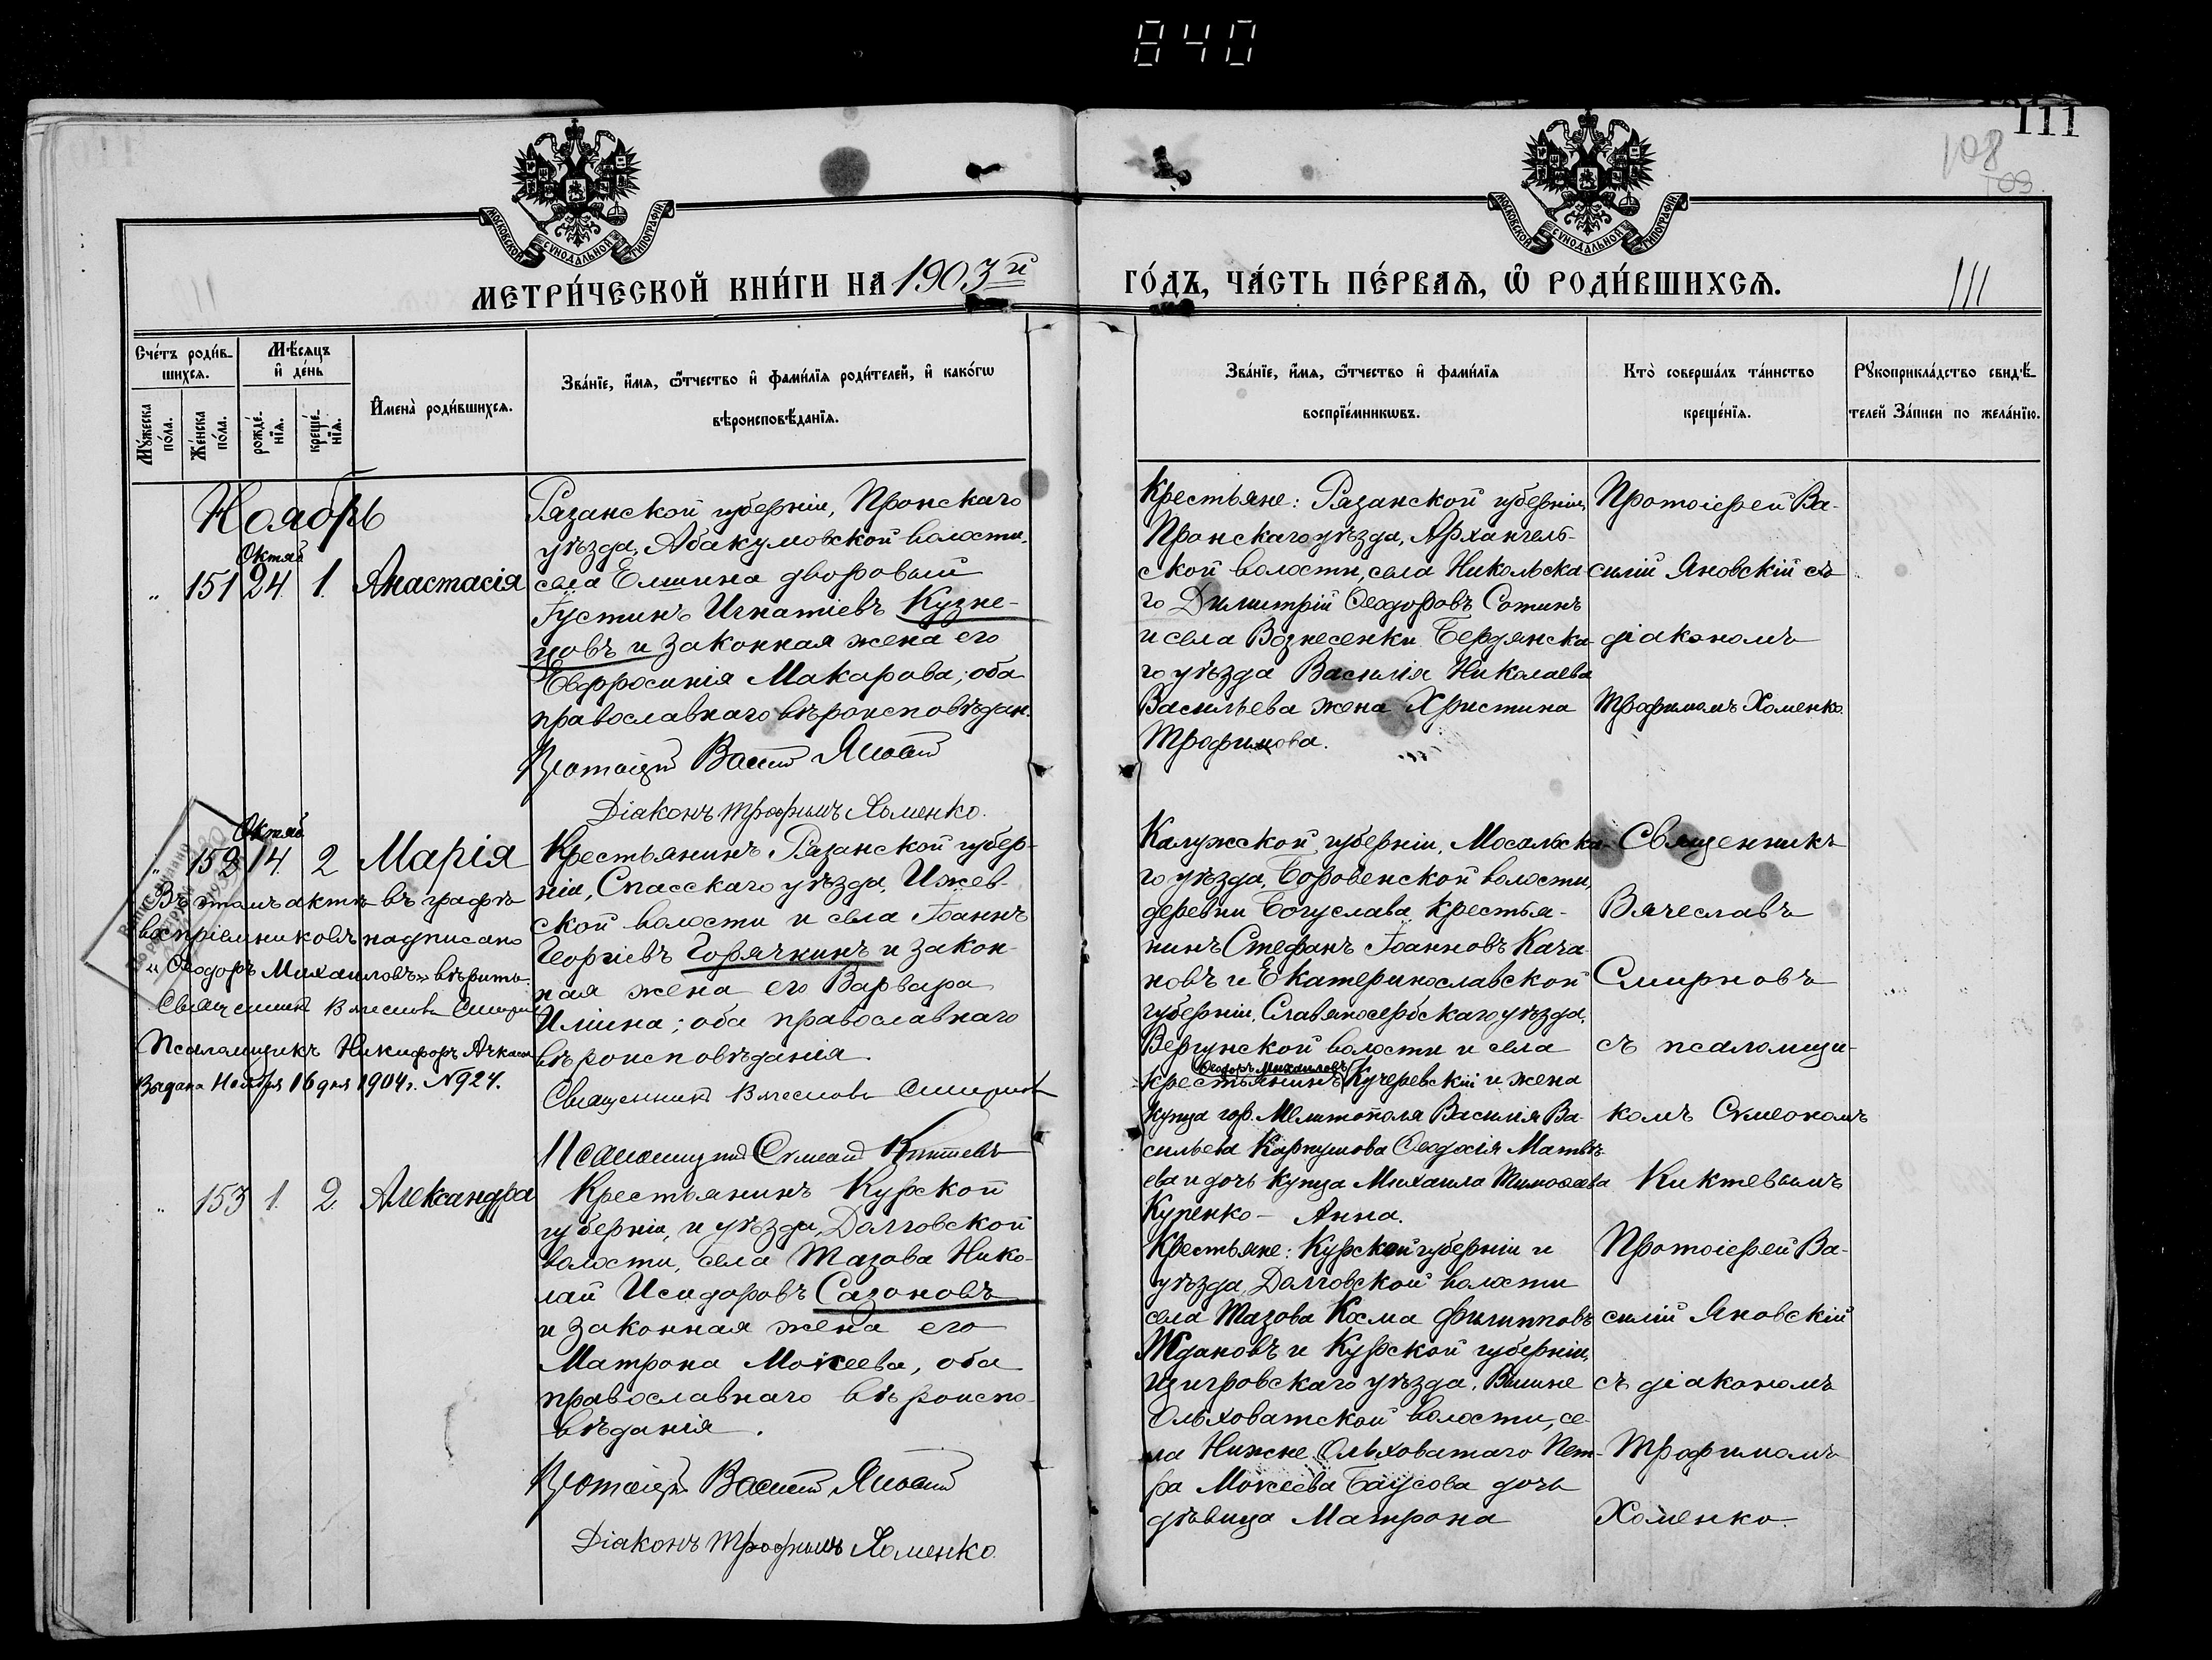 840
111
108
109
МОСКОВСКОЙ СѴНОДАЛЬНОЙ ТИПОГРАФІИ
МОСКОВСКОЙ СѴНОДАЛЬНОЙ ТИПОГРАФІИ
МЕТРИ́ЧЕСКОЙ КНИ́ГИ НА 1903й
ГО́ДЪ, ЧА́СТЬ ПЕ́РВАѦ, Ѽ РОДИ́ВШИХСѦ.
111
Сче́тъ роди́в-
шихсѧ.
Мѣ́сѧцъ
и҆ де́нь
Мꙋ́жеска
по́ла.
Же́нска
по́ла.
рожде́-
нїѧ.
креще́-
нїѧ.
И҆мена̀ роди́вшихсѧ.
Зва́нїе, и҆́мѧ, ѻ҆́тчество и҆ фами́лїѧ роди́телей, и҆ како́гѡ
вѣроисповѣ́данїѧ.
Зва́нїе, и҆́мѧ, ѻ҆́тчество и҆ фами́лїѧ
воспрїе́мникѡвъ.
Кто̀ соверша́лъ та́инство
креще́нїѧ.
Рꙋкоприкла́дство свидѣ́-
телей За́писи по жела́нїю.
Ноябрь
Октяб
„ 151 24. 1. Анастасія
Рязанской губерніи, Пронскаго
уѣзда, Абакумовской волости,
села Елшина дворовый
Іустинъ Игнатіевъ Кузне-
цовъ и законная жена его
Евфросинія Макарова; оба
православнаго вѣроисповѣдан.
Протоіерей Василій Яновскій
Діаконъ Трофимъ Хоменко.
Крестьяне: Рязанской губерніи,
Пронскаго уѣзда, Архангель-
ской волости, села Никольска-
го Димитрій Ѳеодоровъ Сотинъ
и села Вознесенки Бердянска-
го уѣзда Василія Николаева
Васильева жена Христина
Трофимова.
Протоіерей Ва-
силій Яновскій съ
діакономъ
Трофимомъ Хоменко.
Октяб
„ 152 14. 2 Марія
Въ этомъ актѣ въ графѣ
воспріемниковъ надписано
„Ѳеодоръ Михаиловъ" вѣрить.
Священникъ Вячеславъ Смирнов
Псаломщикъ Никифоръ
Выдана Ноября 16 дня 1904 г. № 924.
Крестьянинъ Рязанской губер-
ніи, Спасскаго уѣзда, Ижев-
ской волости и села Іоаннъ
Георгіевъ Горячкинъ и закон-
ная жена его Варвара
Иліина; оба православнаго
вѣроисповѣданія.
Священникъ Вячеславъ Смирнов
Псаломщикъ Сѵмеонъ Киктевъ
Калужской губерніи, Мосальска-
го уѣзда, Боровенской волости,
деревни Богуслава крестья-
нинъ Стефанъ Іоанновъ Кача-
новъ и Екатеринославской
губерніи, Славяносербскаго уѣзда,
Вергунской волости и села
Ѳеодоръ Михаиловъ
крестьянинъ Кучеревскій и жена
купца гор. Мелитополя Василія Ва-
сильева Карпушова Ѳеодосія Матвѣ-
ева и дочь купца Михаила Тимоѳеева
Купенко - Анна.
Священникъ
Вячеславъ
Смирновъ
съ псаломщи-
комъ Сѵмеономъ
Киктевымъ
„ 153 1. 2. Александра
Крестьянинъ Курской
губерніи, и уѣзда, Долговской
волости, села Тазова Нико-
лай Исидоровъ Сазоновъ
и законная жена его
Матрона Мокеева, оба
православнаго вѣроиспо-
вѣданія.
Протоіерей Василій Яновскій
Діаконъ Трофимъ Хоменко.
Крестьяне: Курской губерніи и
уѣзда, Долговской волости
села Тазова Косма Филипповъ
Ждановъ и Курской губерніи,
Щигровскаго уѣзда, Вышне
Ольховатской волости, се-
ла Нижне Ольховатаго Пет-
ра Мокеева Баусова дочь
дѣвица Матрона
Протоіерей Ва-
силій Яновскій
съ діакономъ
Трофимомъ
Хоменко.